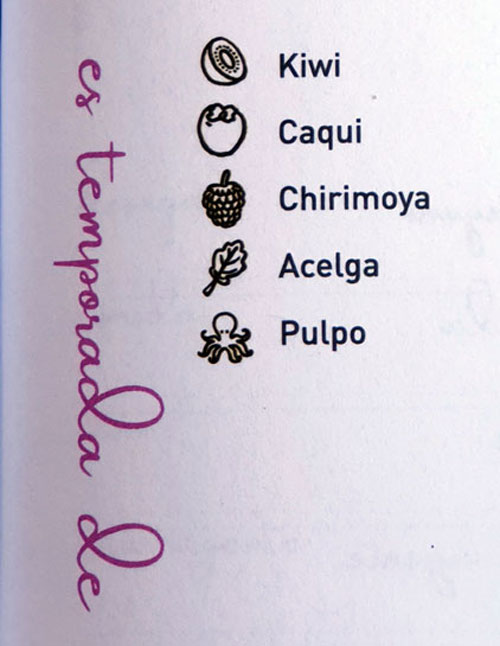 es temporada de
Kiwi
Caqui
Chirimoya
Acelga
Pulpo